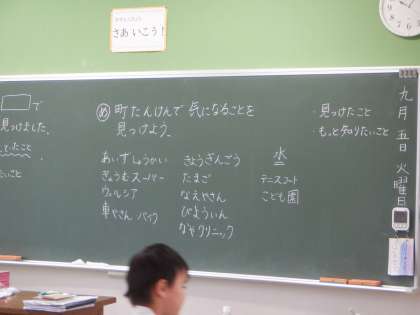 さあ いこう！
で
見つけました。
いたこと
たいこと
め 町たんけんで 気になることを
見つけよう。
あいずしょうかい
ぎょうむスーパー
ウェルシア
車やさん バイク
きょうざんごう
たまご
なえやさん
びょういん
なやクリニック
水
テニスコート
こども園
・見つけたこと
・もっと知りたいこと
九月五日火曜日